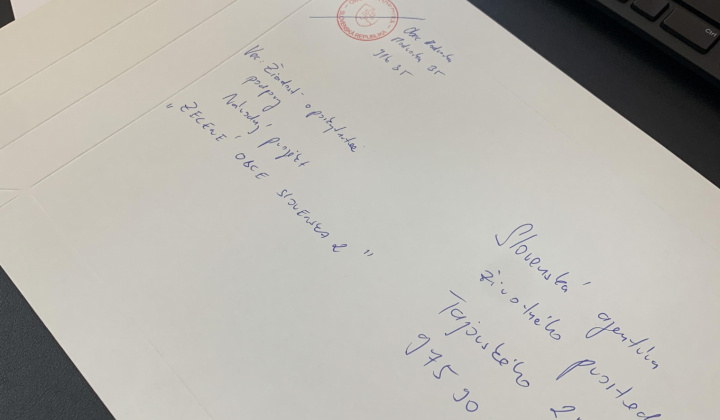 SLOVENSKÁ REPUBLIKA
Obec
35
916 35
Vec: Žiadosť o poskytnutie
podpory
Národný projekt
"ZELENÉ OBCE SLOVENSKA 2"
Slovenská agentúra
životného prostred
Tajovského 2
975 90
Ctrl